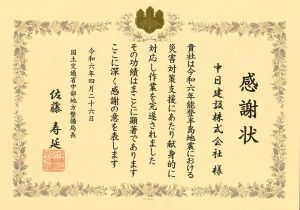 感謝状
中日建設株式会社 様
貴社は令和六年能登半島地震における
災害対策支援にあたり献身的に
対応し作業を完遂されました
その功績はまことに顕著であります
ここに深く感謝の意を表します
令和六年四月二十六日
国土交通省中部地方整備局長
佐藤寿延